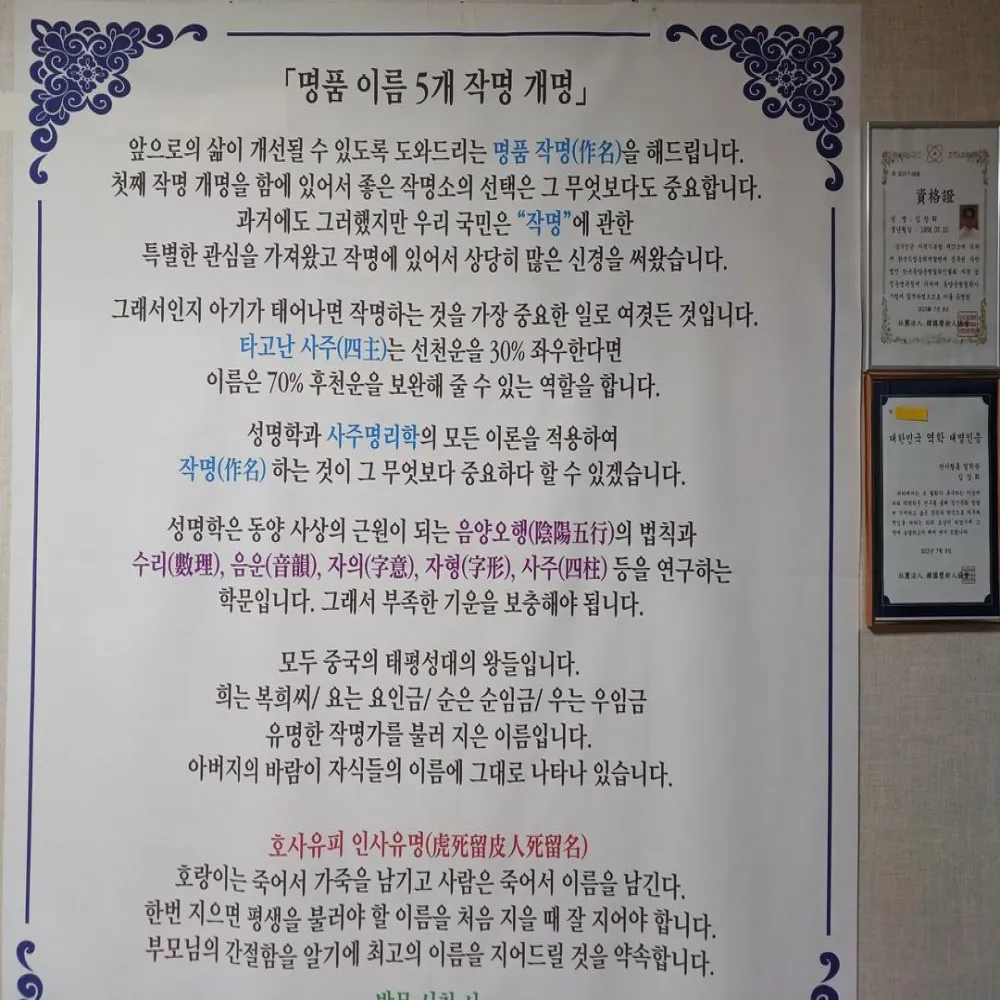 「명품 이름 5개 작명 개명」
앞으로의 삶이 개선될 수 있도록 도와드리는 명품 작명(作名)을 해드립니다.
첫째 작명 개명을 함에 있어서 좋은 작명소의 선택은 그 무엇보다도 중요합니다.
과거에도 그러했지만 우리 국민은 “작명”에 관한
특별한 관심을 가져왔고 작명에 있어서 상당히 많은 신경을 써왔습니다.
그래서인지 아기가 태어나면 작명하는 것을 가장 중요한 일로 여겼든 것입니다.
타고난 사주(四主)는 선천운을 30% 좌우한다면
이름은 70% 후천운을 보완해 줄 수 있는 역할을 합니다.
성명학과 사주명리학의 모든 이론을 적용하여
작명(作名) 하는 것이 그 무엇보다 중요하다 할 수 있겠습니다.
성명학은 동양 사상의 근원이 되는 음양오행(陰陽五行)의 법칙과
수리(數理), 음운(音韻), 자의(字意), 자형(字形), 사주(四柱) 등을 연구하는
학문입니다. 그래서 부족한 기운을 보충해야 됩니다.
모두 중국의 태평성대의 왕들입니다.
희는 복희씨/ 요는 요인금/ 순은 순임금/ 우는 우임금
유명한 작명가를 불러 지은 이름입니다.
아버지의 바람이 자식들의 이름에 그대로 나타나 있습니다.
호사유피 인사유명(虎死留皮人死留名)
호랑이는 죽어서 가죽을 남기고 사람은 죽어서 이름을 남긴다.
한번 지으면 평생을 불러야 할 이름을 처음 지을 때 잘 지어야 합니다.
부모님의 간절함을 알기에 최고의 이름을 지어드릴 것을 약속합니다.
資格證
대한민국 역학 대명인증